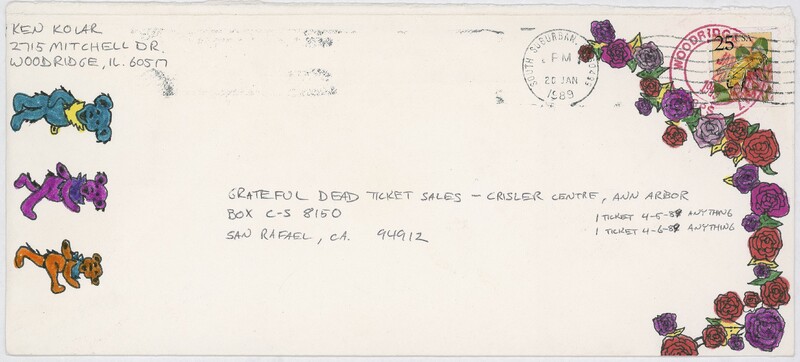 KEN KOLAR
2715 MITCHELL DR.
WOODRIDGE, IL. 60517
SOUTH SUBURBAN
PM
20 JAN
1989
WOODRIDGE
25 USA
GRATEFUL DEAD TICKET SALES – CRISLER CENTRE, ANN ARBOR
BOX C-S 8150
SAN RAFAEL, CA. 94912
1 TICKET 4-5-89 ANYTHING
1 TICKET 4-6-89 ANYTHING